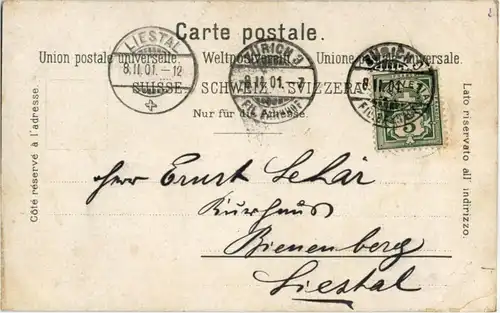 Carte postale.
Union postale universelle. Weltpostverein. Unione postale universale.
SUISSE. SCHWEIZ. SVIZZERA.
Nur für die Adresse.
Côté réservé à l'adresse.
Lato riservato all' indirizzo.
LIESTAL
8.II.01.-12
ZÜRICH 3
8.II.01.-7
FIL. BAHNHOF
ZÜRICH 3
8.II.01.
5
Herr Ernst
Kurhaus
Bienenberg
Liestal